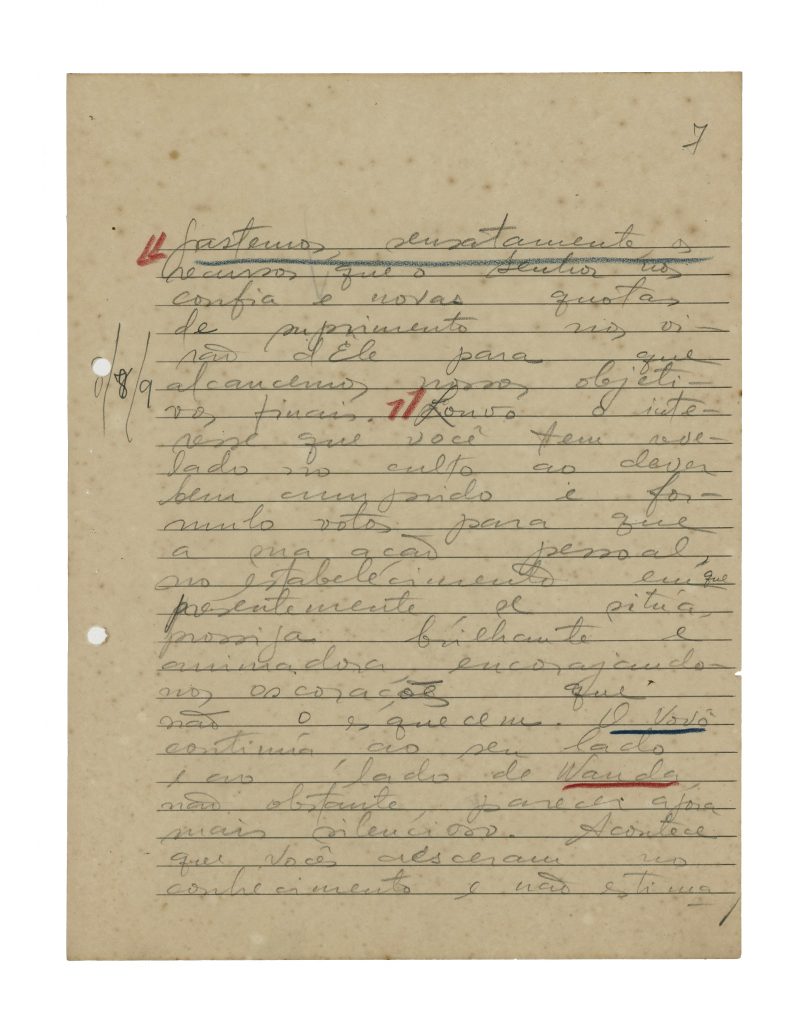 7
gastemos, sensatamente, os
recursos que o Senhor nos
confia e novas quotas
de suprimento nos vi-
rão d'Ele para que
alcancemos nossos objeti-
vos finais. Louvo o inte-
resse que você tem reve-
lado no culto ao dever
bem cumprido e for-
mulo votos para que
a sua ação pessoal,
no estabelecimento em que
presentemente se situa,
prossiga brilhante e
animadora, encorajando-
nos os corações que
não o esquecem. O Vovô
continúa ao seu lado
e ao lado de Wanda,
não obstante parecer agora
mais silencioso. Acontece
que vocês cresceram no
conhecimento e não estima
8/9